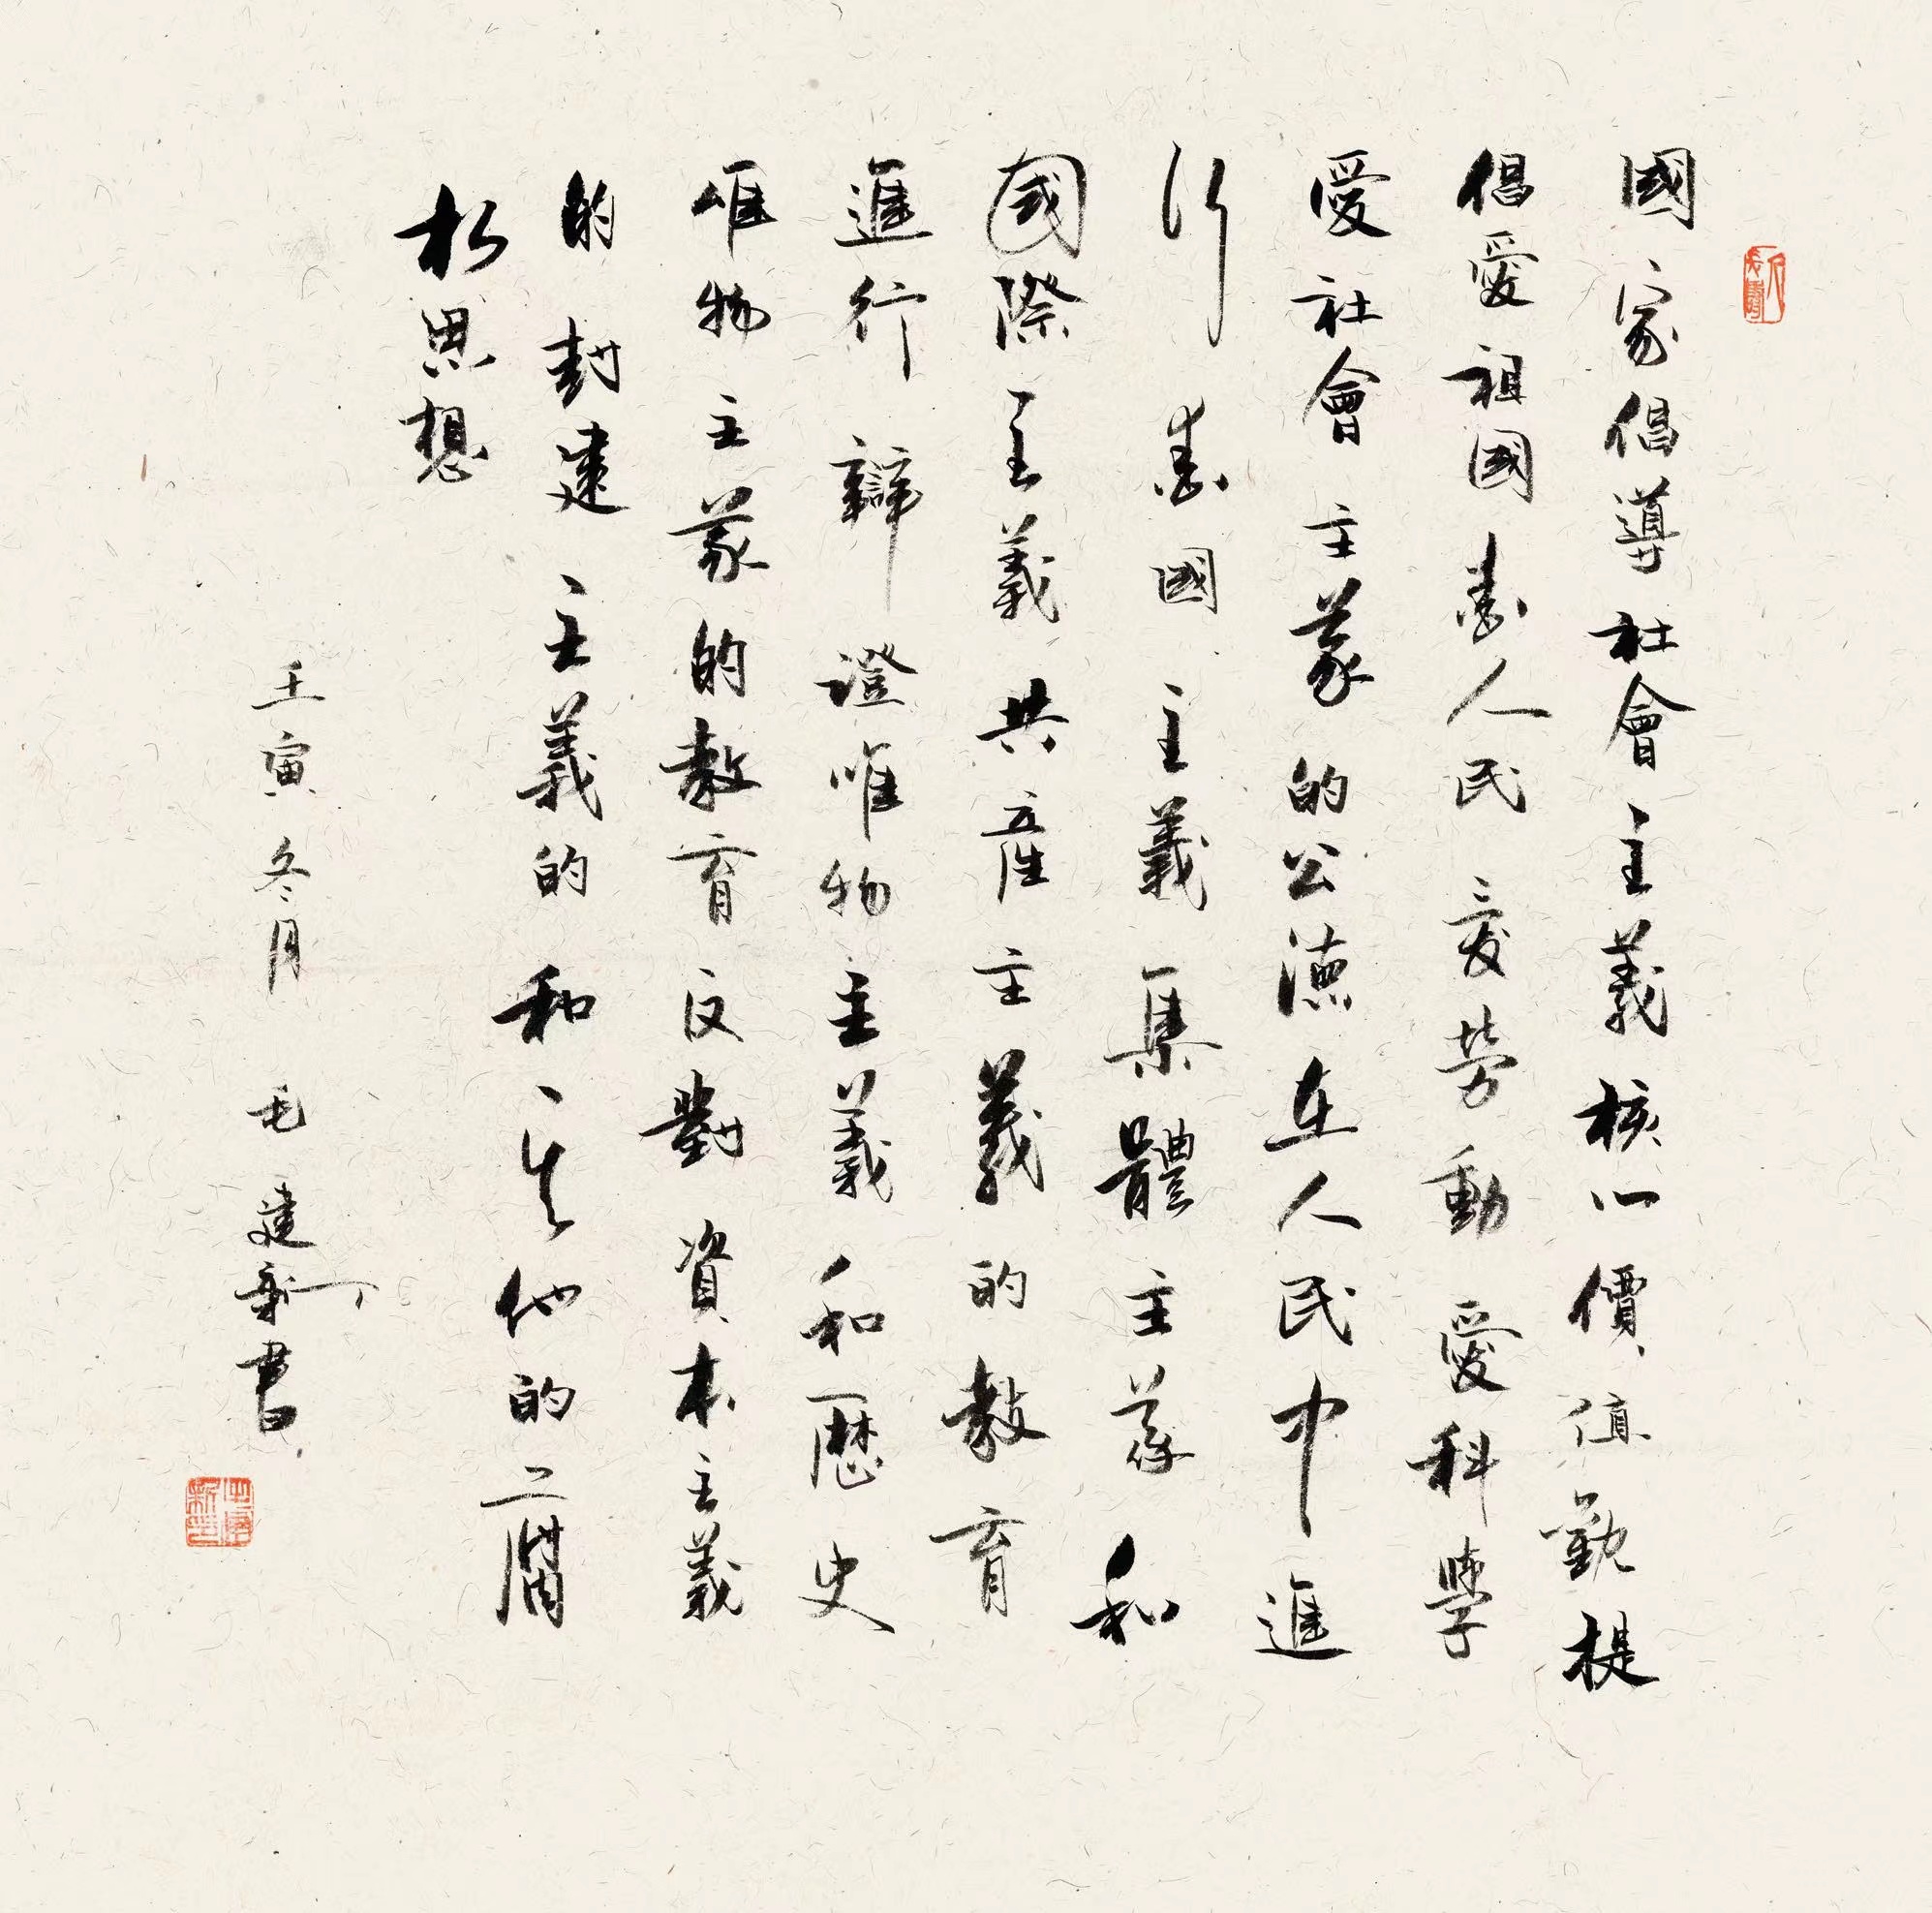 國家倡導社會主義核心價值觀提
倡愛祖國愛人民愛勞動愛科學
愛社會主義的公德在人民中進
行愛國主義集體主義和
國際主義共產主義的教育
進行辯證唯物主義和歷史
唯物主義的教育反對資本主義
的封建主義的和其他的腐
朽思想
壬寅冬月 毛建新書